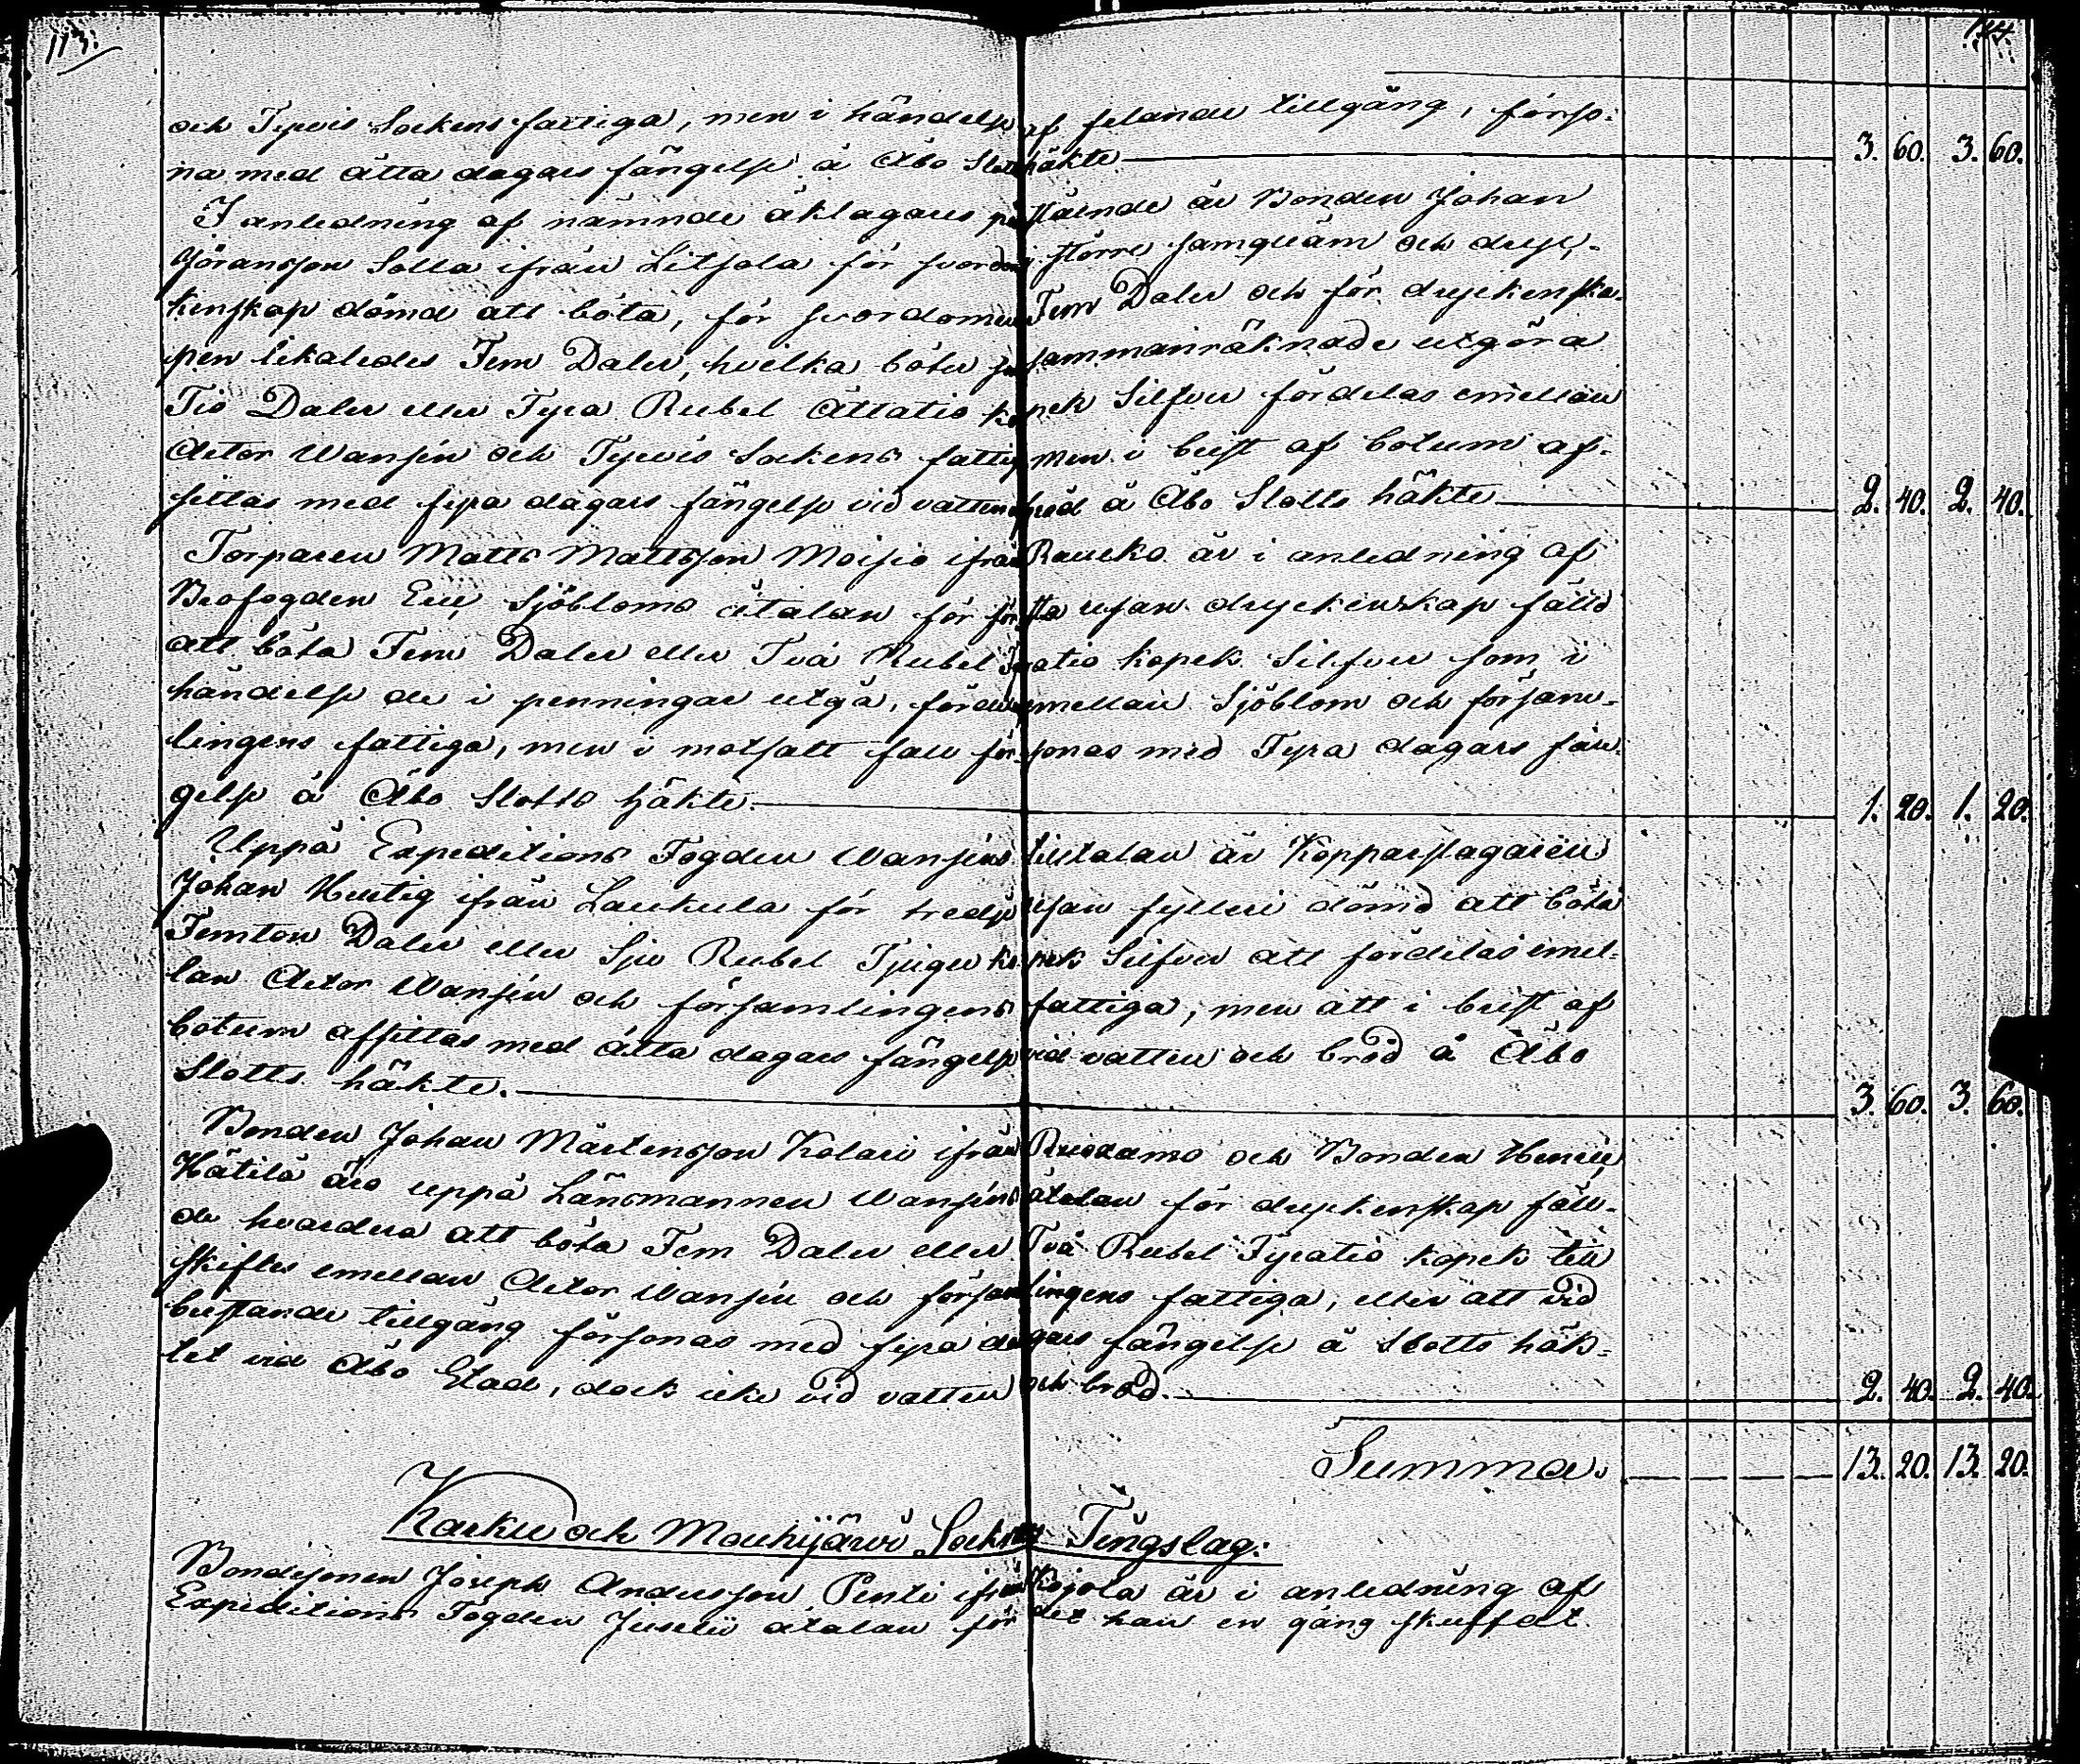 113.
114.
och Tyrvis Sockens fattiga, men i händelse af felande tillgång, förso-
na med åtta dagars fängelse å Åbo Slottshäkte 3. 60. 3. 60.
I anledning af nämnde åklagares påstående är Bonden Johan
Göransson Solla ifrån Litsola för svordom i större samqväm och dryc-
kenskap dömd att böta, för svordomen Fem Daler och för dryckenska-
pen likaledes Fem Daler, hvilka böter sammanräknade utgöra
Tio Daler eller Fyra Rubel Åttatio kopek Silfver fördelas emellan
Actor Wansén och Tyrvis Sockens fattige men i brist af botum af-
sittas med fyra dagars fängelse vid vatten bröd å Åbo Slotts häkte 2. 40. 2. 40.
Torparen Matts Mattsson Moisio ifrån Rauko är i anledning af
Brofogden Eric Sjöbloms åtalan för första resan dryckenskap fälld
att böta Fem Daler eller Två Rubel Fyratio kopek Silfver som i
händelse de i penningar utgå, fördelas emellan Sjöblom och försam-
lingens fattiga, men i motsatt fall försonas med Fyra dagars fän-
gelse å Åbo Slotts häkte. 1. 20. 1. 20.
Uppå Expeditions Fogden Wanséns tilltalan är Kopparslagaren
Johan Hurtig ifrån Laukula för tredje resan fylleri dömd att böta
Femton Daler eller Sju Rubel Tjugu kopek Silfver att fördelas emel-
lan Actor Wansén och församlingens fattiga, men att i brist af
botum afsittas med åtta dagars fängelse vid vatten och bröd å Åbo
Slotts häkte. 3. 60. 3. 60.
Bonden Johan Mårtensson Kolari ifrån Ruodamo och Bonden Henric
Hätilä äro uppå Länsmannen Wanséns åtalan för dryckenskap fäll-
de hvardera att böta Fem Daler eller Två Rubel Fyratio kopek till
skiftes emellan Actor Wansén och församlingens fattiga, eller att vid
bristande tillgång försonas med fyra dagars fängelse å Slotts häk-
tet vid Åbo Stad, dock icke vid vatten och bröd. 2. 40. 2. 40.
Summa. 13. 20. 13. 20.
Karku och Mouhijärvi Sockens Tingslag:
Bondesonen Joseph Andersson Penti ifrån Kojola är i anledning af
Expeditions Fogden Juselii åtalan för det han en gång skuffat